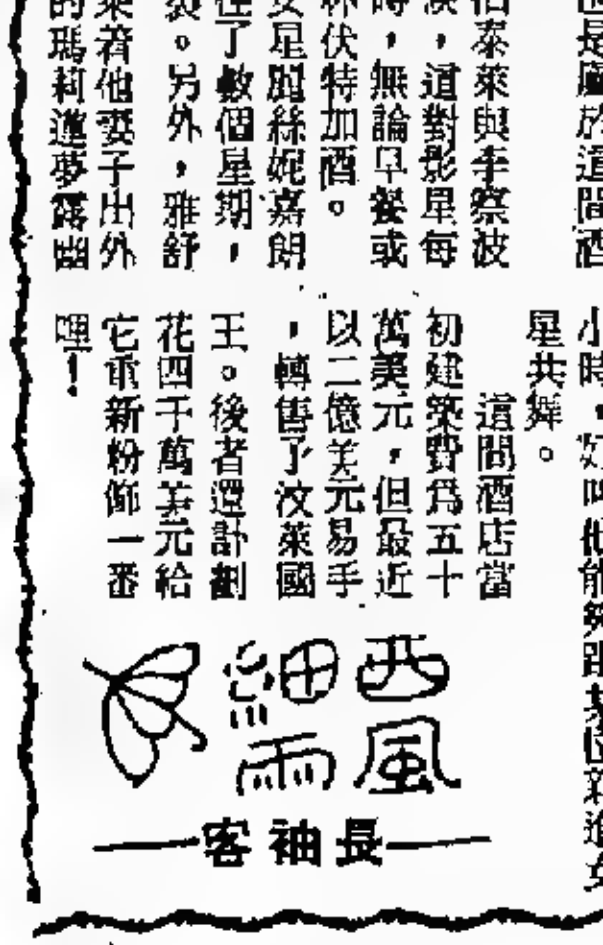 是屬於這間酒
泰萊與李察波
,這對影星每
時,無論早餐或
杯伏特加酒。
女星麗絲妮嘉朗
住了數個星期,
裂。另外,雅舒
乘著他妻子出外
的瑪莉蓮夢露幽
小時,好叫他能夠跟某位新進女
星共舞。
這間酒店當
初建築費爲五十
萬美元,但最近
以二億美元易手
,轉售予汶萊國
王。後者還計劃
花四千萬美元給
它重新粉飾一番
哩!
西風
細雨
長袖客